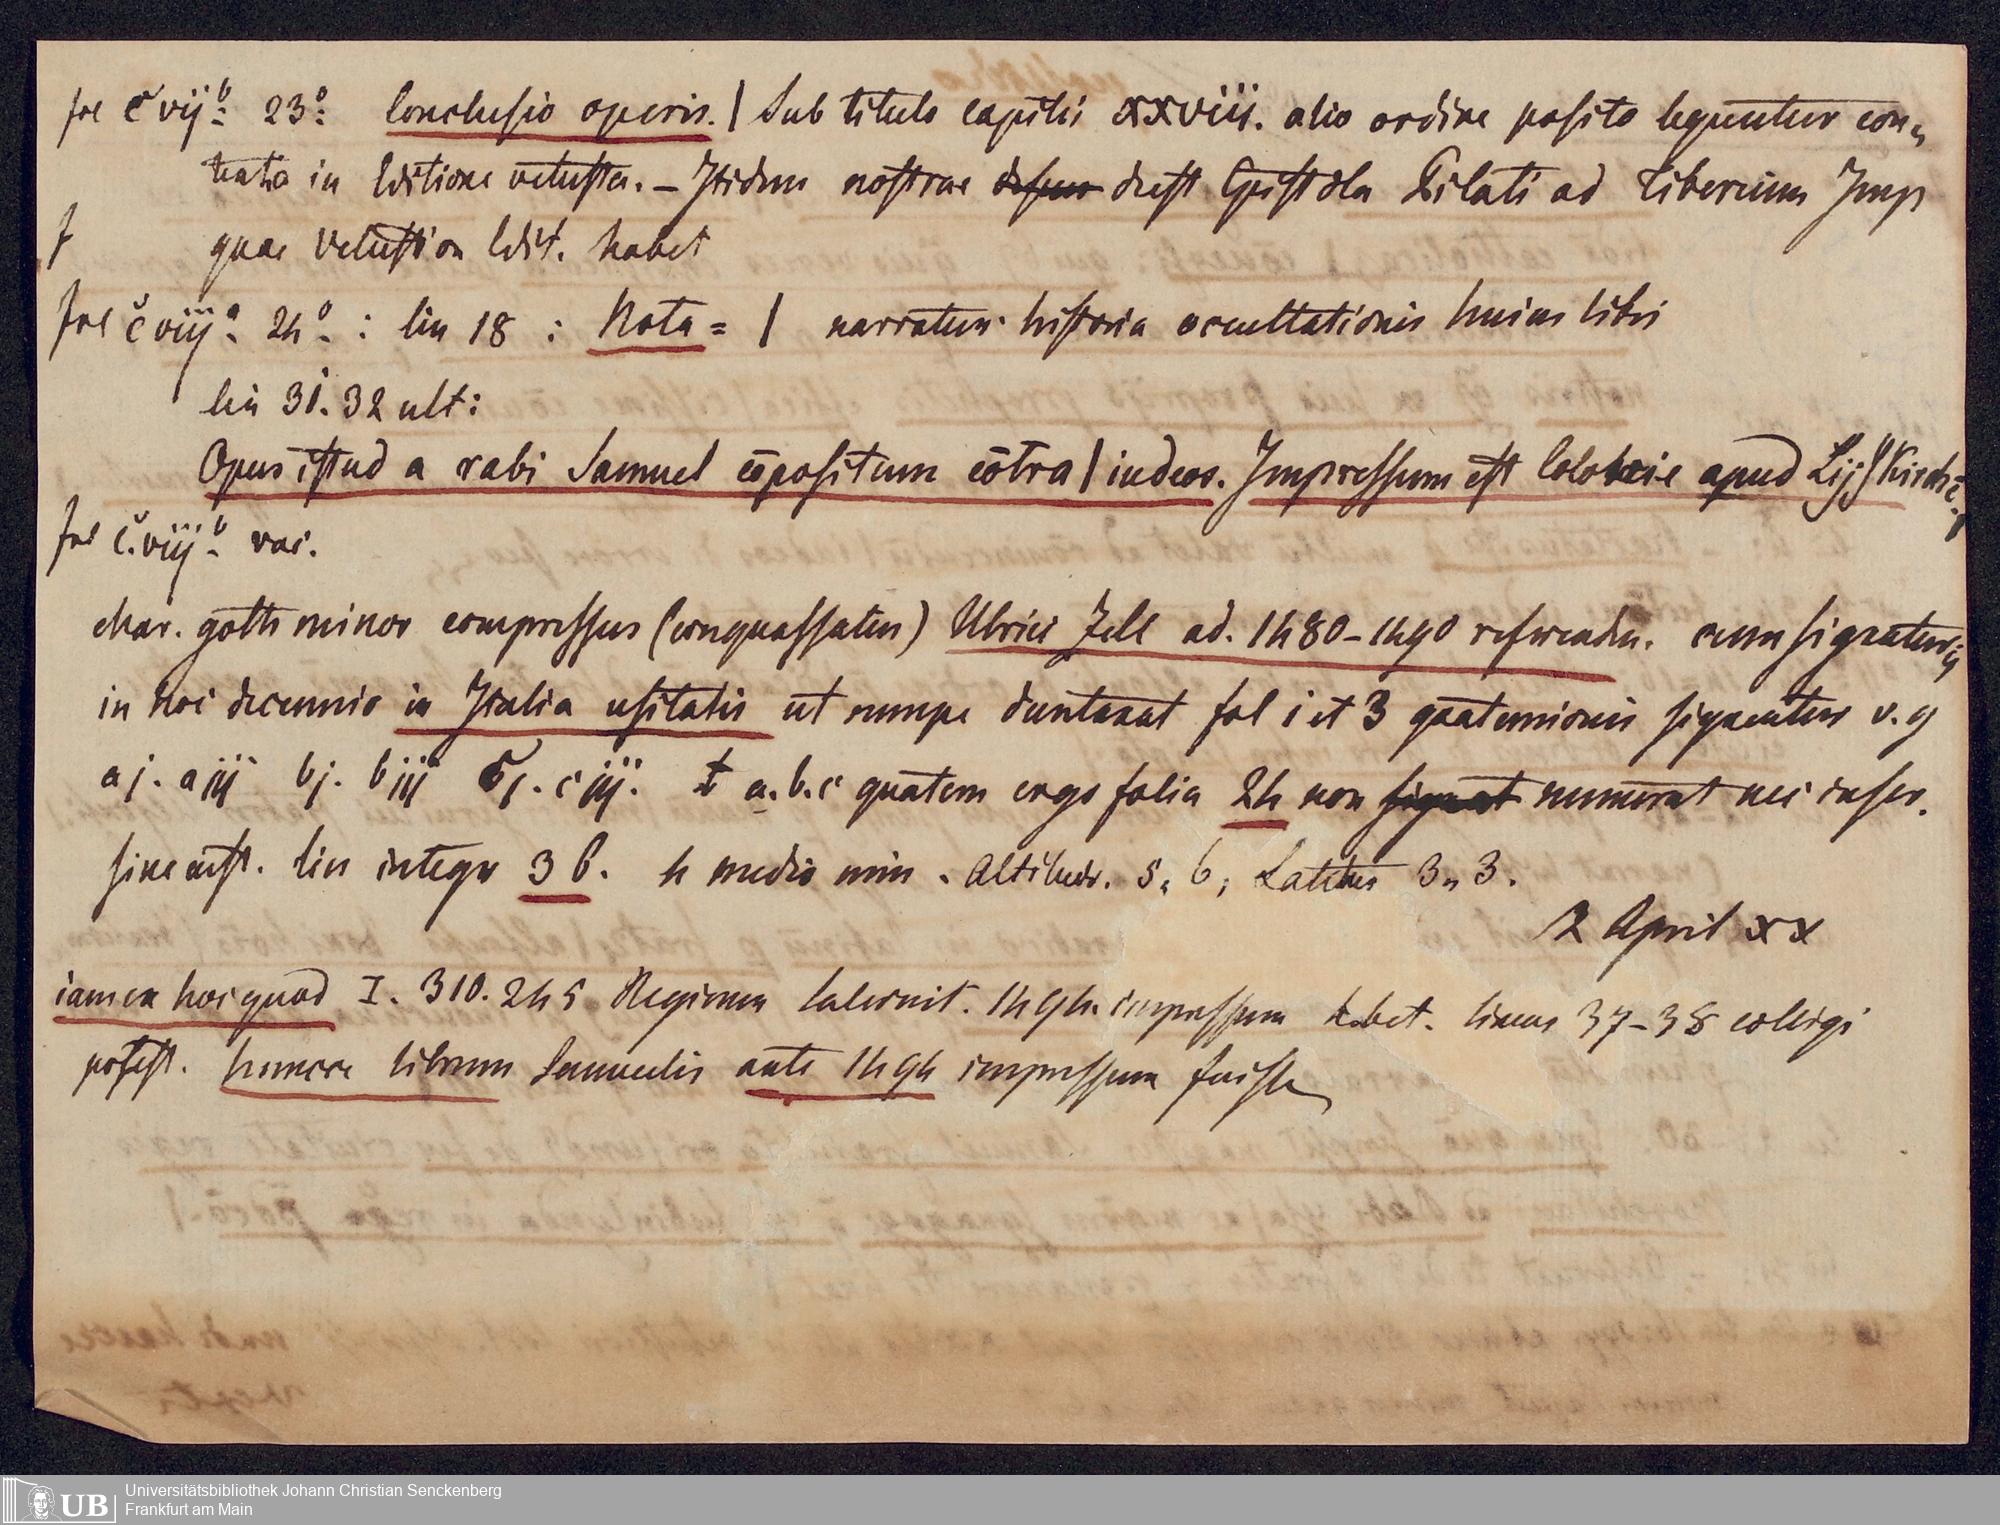 fol c vij b. 23o. Conclusio operis. | Sub titulo capitis xxviii. alio ordine posito leguntur con„
tenta in Editione vetusta. – Itidem nostrae deest Epistola Pilati ad Tiberium Imp
quae vetustior Edit. habet
fol c viij a. 24o. : lin 18 : Nota = | narratur historia occultationis huius libri
lin 31. 32 ult:
Opus istud a rabi Samuel cōpositum cōtra | iudeos. Impressum est Colonie apud Lijs Kirchē
fol c. viij b. vac.
char. goth minor compressus (conquassatus) Ulrici Zell ad. 1480–1490 referendu. cum signaturis
in hoc decennio in Italia usitatis ut nempe duntaxat fol 1 et 3 quaternionis signentur v. g
a j. a iij b j. b iij c j. c iij. a. b. c quatern ergo folia 24 non numerat nec
sine cust. lin integr 36. h medio min. Altitudo. 5„ 6, Latitud 3„ 3.
2 April xx
iam ex hoc quod I. 310. 245 Regimen Salernit. 1494. impressum habet. lineas 37–38 colligi
potest. huncce librum Samuelis ante 1494 impressum fuisse
Universitätsbibliothek Johann Christian Senckenberg
Frankfurt am Main
UB